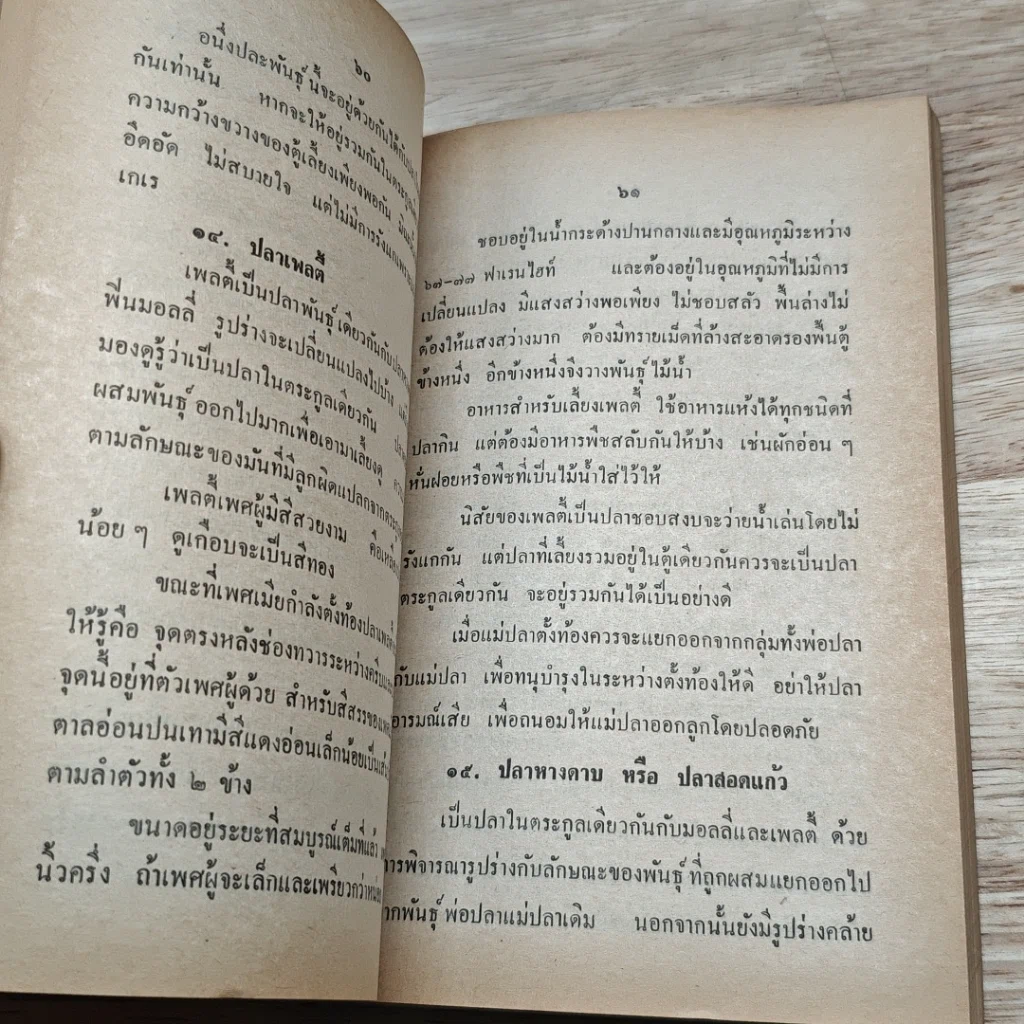 ๖๐
อนึ่งปละพันธุ์นี้จะอยู่ด้วยกันได้กับ
กันเท่านั้น หากจะให้อยู่รวมกันในตระกูล
ความกว้างขวางของตู้เลี้ยงเพียงพอกัน
อึดอัด ไม่สบายใจ แต่ไม่มีการรังแก
เกเร
๑๔. ปลาเพลตี้
เพลตี้เป็นปลาพันธุ์เดียวกันกับปลา
พี่นมอลลี่ รูปร่างจะเปลี่ยนแปลงไปบ้าง
มองดูรู้ว่าเป็นปลาในตระกูลเดียวกัน
ผสมพันธุ์ออกไปมากเพื่อเอามาเลี้ยงดู
ตามลักษณะของมันที่มีลูกผิดแปลกจาก
เพลตี้เพศผู้มีสีสวยงาม คือ
น้อย ๆ ดูเกือบจะเป็นสีทอง
ขณะที่เพศเมียกำลังตั้งท้อง
ให้รู้คือ จุดตรงหลังช่องทวารระหว่าง
จุดนี้อยู่ที่ตัวเพศผู้ด้วย สำหรับสีสรร
ตาลอ่อนปนเทามีสีแดงอ่อนเล็กน้อยเป็น
ตามลำตัวทั้ง ๒ ข้าง
ขนาดอยู่ระยะที่สมบูรณ์เต็มที่แล้ว
นิ้วครึ่ง ถ้าเพศผู้จะเล็กและเพรียวกว่า
๖๑
ชอบอยู่ในน้ำกระด้างปานกลางและมีอุณหภูมิระหว่าง
๖๗–๗๗ ฟาเรนไฮท์ และต้องอยู่ในอุณหภูมิที่ไม่มีการ
เปลี่ยนแปลง มีแสงสว่างพอเพียง ไม่ชอบสลัว พื้นล่างไม่
ต้องให้แสงสว่างมาก ต้องมีทรายเม็ดที่ล้างสะอาดรองพื้นตู้
ข้างหนึ่ง อีกข้างหนึ่งจึงวางพันธุ์ไม้น้ำ
อาหารสำหรับเลี้ยงเพลตี้ ใช้อาหารแห้งได้ทุกชนิดที่
ปลากิน แต่ต้องมีอาหารพืชสลับกันให้บ้าง เช่นผักอ่อน ๆ
หั่นฝอยหรือพืชที่เป็นไม้น้ำใส่ไว้ให้
นิสัยของเพลตี้เป็นปลาชอบสงบจะว่ายน้ำเล่นโดยไม่
รังแกกัน แต่ปลาที่เลี้ยงรวมอยู่ในตู้เดียวกันควรจะเป็นปลา
ตระกูลเดียวกัน จะอยู่รวมกันได้เป็นอย่างดี
เมื่อแม่ปลาตั้งท้องควรจะแยกออกจากกลุ่มทั้งพ่อปลา
กับแม่ปลา เพื่อทนุบำรุงในระหว่างตั้งท้องให้ดี อย่าให้ปลา
อารมณ์เสีย เพื่อถนอมให้แม่ปลาออกลูกโดยปลอดภัย
๑๕. ปลาหางดาบ หรือ ปลาสอดแก้ว
เป็นปลาในตระกูลเดียวกันกับมอลลี่และเพลตี้ ด้วย
การพิจารณารูปร่างกับลักษณะของพันธุ์ที่ถูกผสมแยกออกไป
พันธุ์พ่อปลาแม่ปลาเดิม นอกจากนั้นยังมีรูปร่างคล้าย